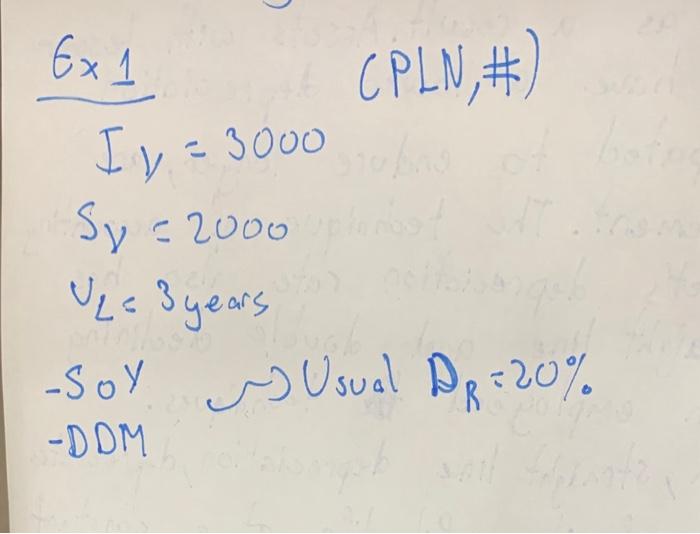 Ex 1 (PLN, #)
IV = 3000
SV = 2000
UL = 3 years
- SOY → Usual DR = 20%
- DDM